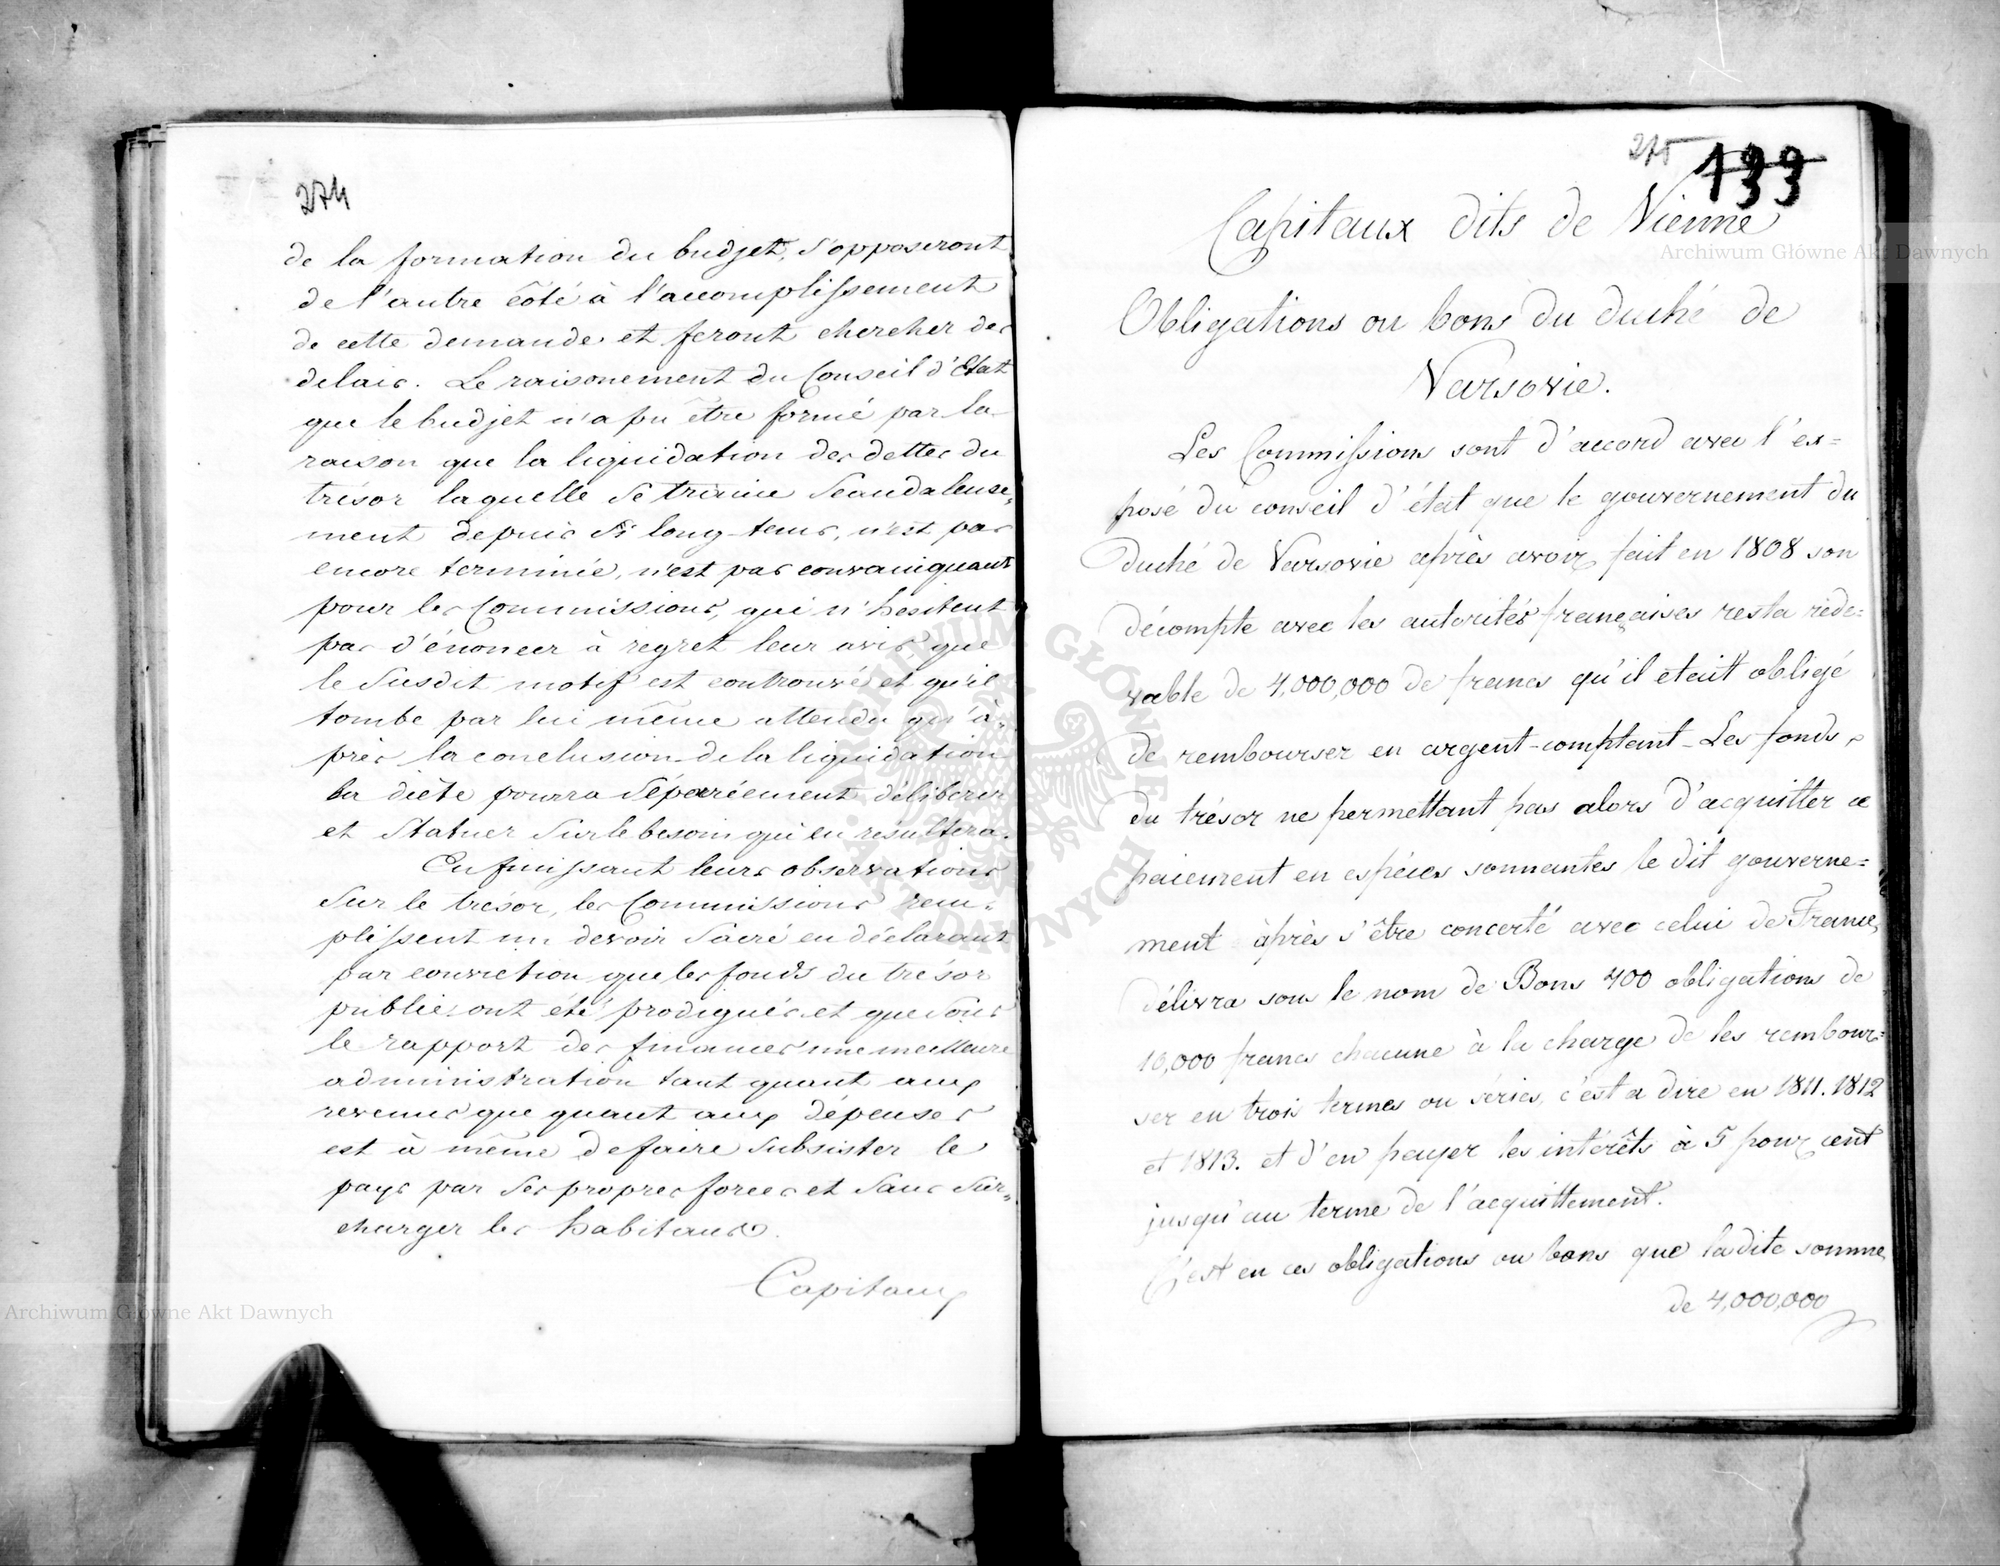 274
de la formation du budjet, s'opposeront
de l'autre côté à l'accomplissement
de cette demande et feront chercher des
delais. Le raisonement du Conseil d'Etat
que le budjet n'a pu être formé par la
raison que la liquidation des dettes du
trésor laquelle se traine scandaleuse-
ment depuis si long-tems, n'est pas
encore terminée, n'est pas convainquant
pour les Commissions, qui n'hesitent
pas d'énoncer à regret leur avis, que
le susdit motif est controuvé et qu'il
tombe par lui même attendu qu'à-
près la conclusion de la liquidation
la diète pourra séparéement déliberer
et statuer sur le besoin qui en resultera.
En finissant leurs observations
sur le trésor, les Commissions rem-
plissent un devoir sacré en déclarant
par conviction que les fonds du trésor
public ont été prodigués et que sous
le rapport des finances une meilleure
administration tant quant aux
revenus que quant aux dépenses
est à même de faire subsister le
pays par ses propres forces et sans sur-
charger les habitans.
Capitaux
275 199
Capitaux dits de Vienne
Obligations ou bons du duché de
Varsovie.
Les Commissions sont d'accord avec l'ex=
posé du conseil d'état que le gouvernement du
duché de Varsovie après avoir fait en 1808 son
décompte avec les autorités françaises resta rede=
vable de 4,000,000 de francs qu'il etait obligé
de rembourser en argent-comptant_ Les fonds
du trésor ne permettant pas alors d'acquitter ce
paiement en espéces sonnantes le dit gouverne=
ment àprès s'être concerté avec celui de France,
délivra sous le nom de Bons 400 obligations de
10,000 francs chacune à la charge de les rembour=
ser en trois termes ou séries, c'est a dire en 1811. 1812
et 1813. et d'en payer les intérêts à 5 pour cent
jusqu'au terme de l'acquittement.
C'est en ces obligations ou bons que la dite somme
de 4,000,000
Archiwum Główne Akt Dawnych
Archiwum Główne Akt Dawnych
ARCHIWUM GŁÓWNE AKT DAWNYCH